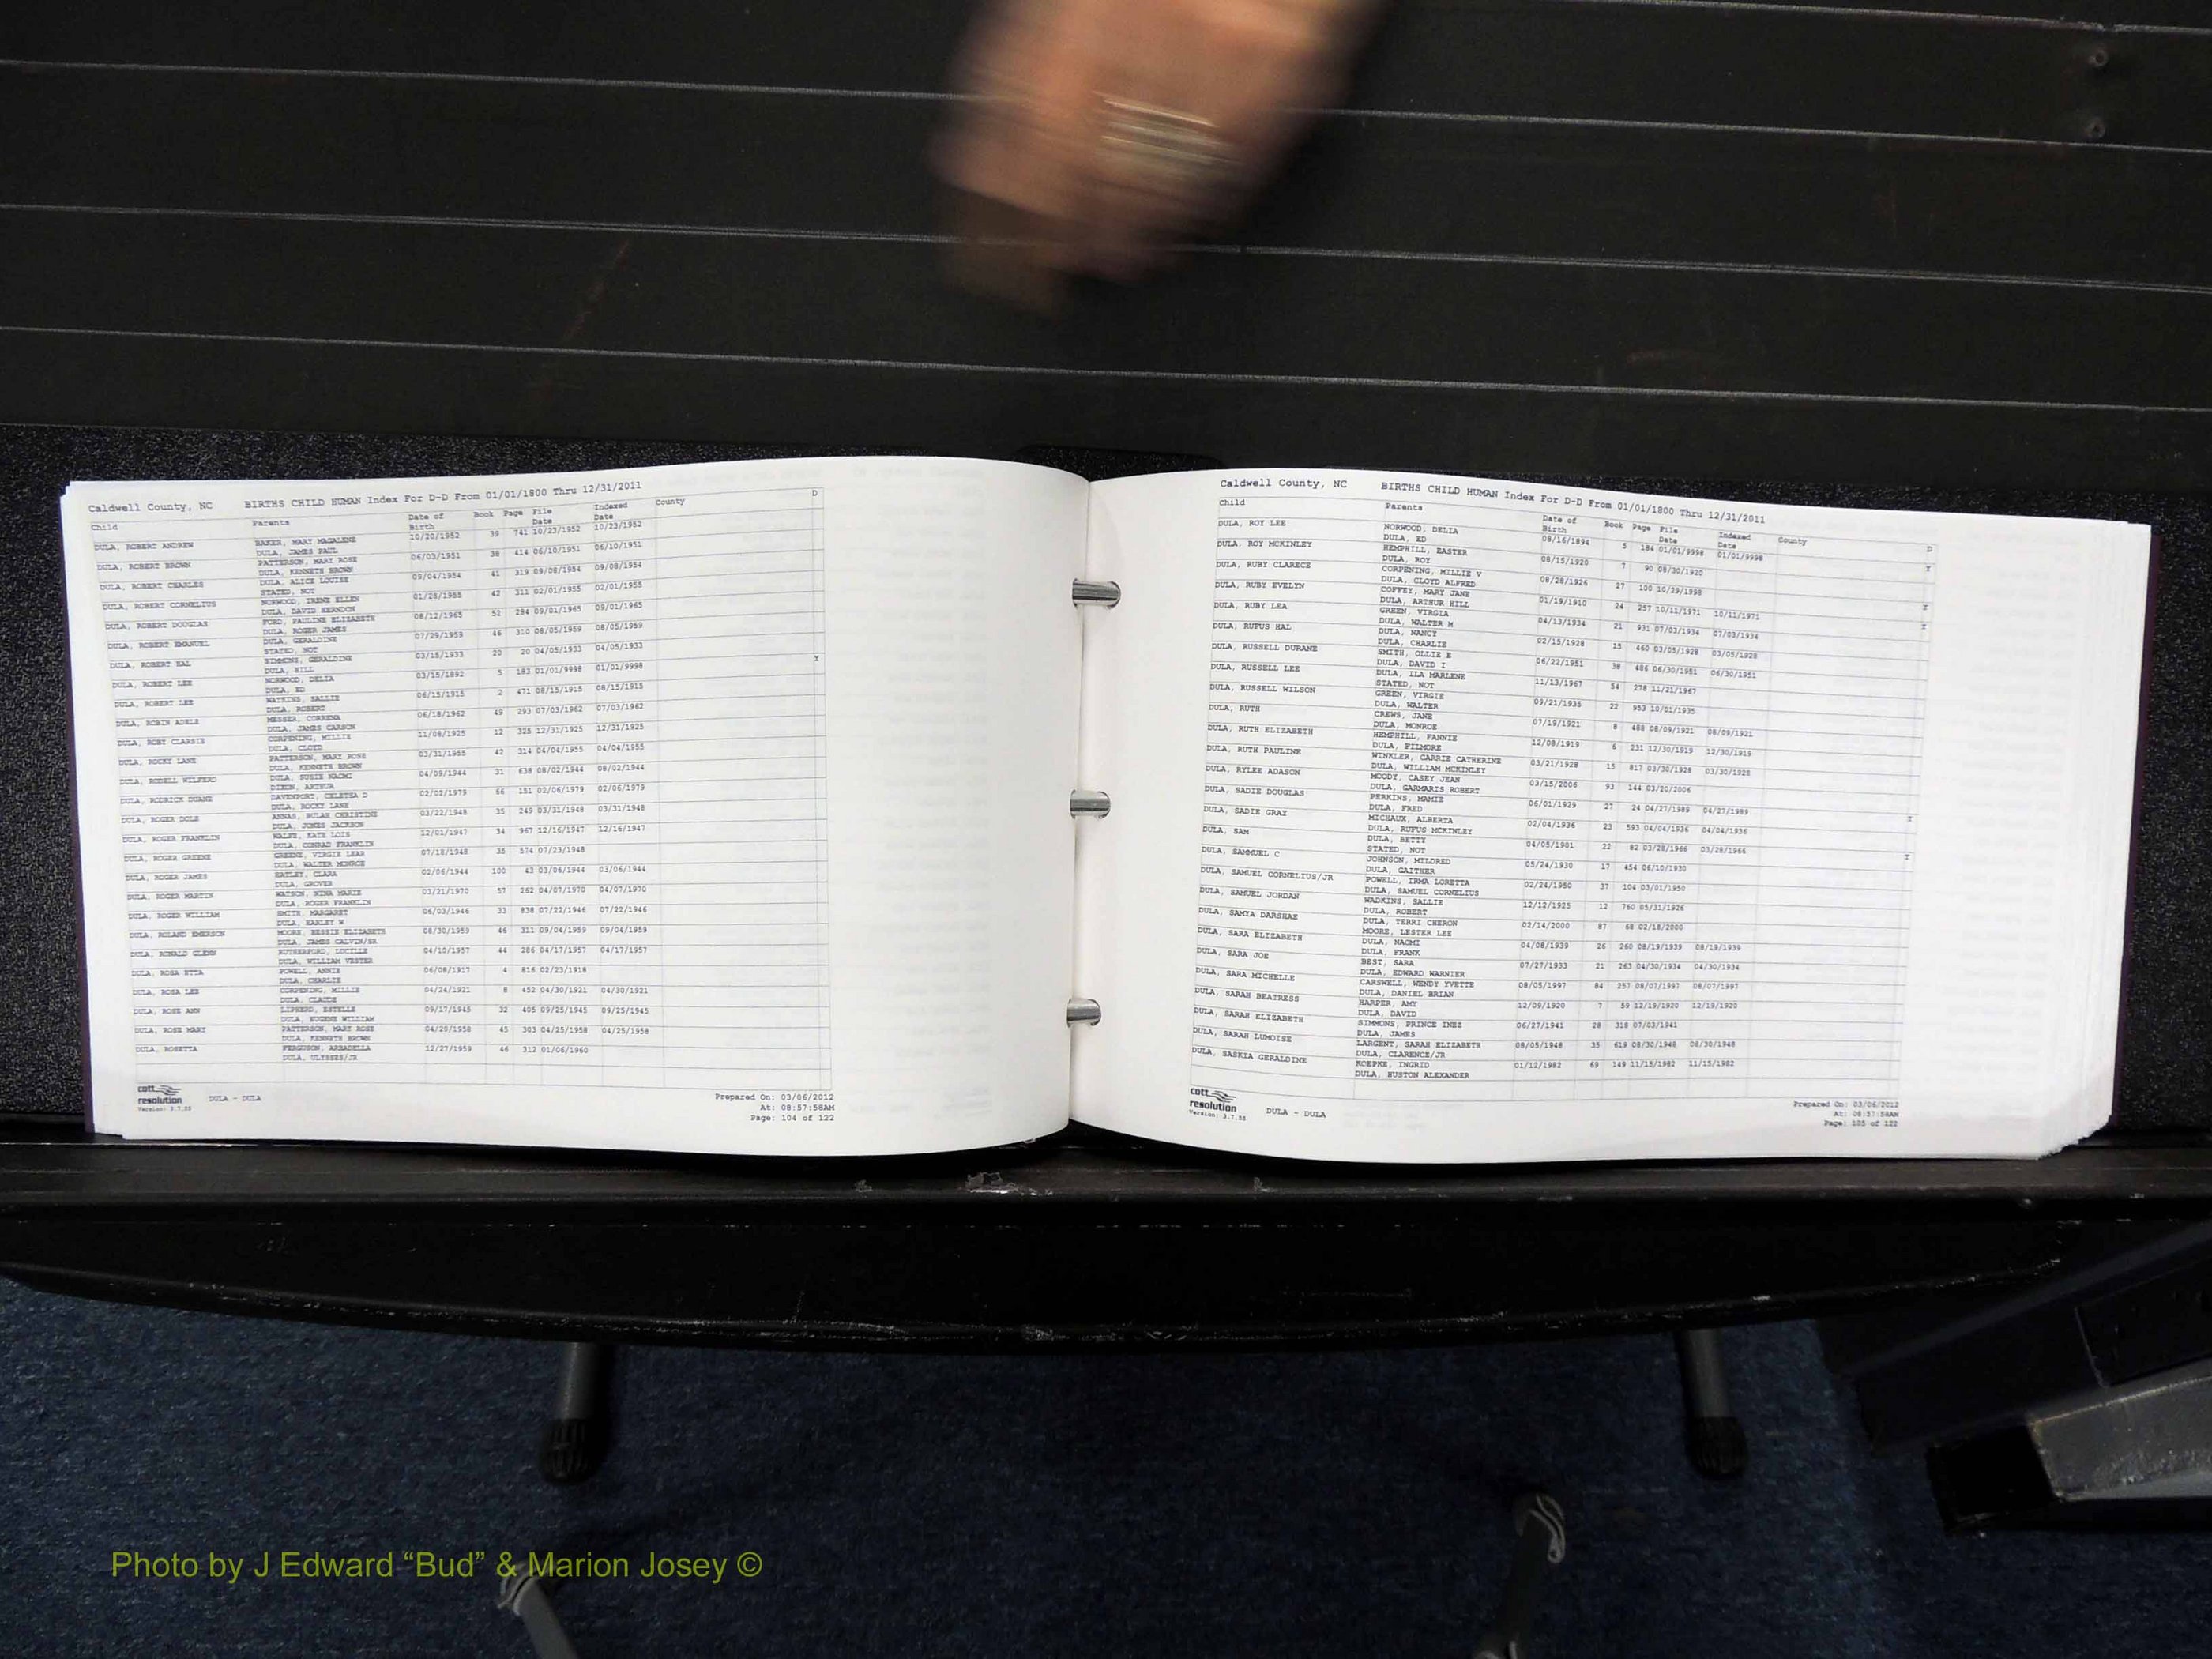 Caldwell County, NC BIRTHS CHILD HUMAN Index For D-D From 01/01/1800 Thru 12/31/2011
Child Parents Date of Birth Book Page File Date Indexed Date County D
DULA, ROBERT ANDREW BAKER, MARY MAGALENE 10/20/1952 39 741 10/23/1952 10/23/1952
DULA, JAMES PAUL
DULA, ROBERT BROWN PATTERSON, MARY ROSE 06/03/1951 38 414 06/10/1951 06/10/1951
DULA, KENNETH BROWN
DULA, ROBERT CHARLES DULA, ALICE LOUISE 09/04/1954 41 319 09/08/1954 09/08/1954
STATED, NOT
DULA, ROBERT CORNELIUS NORWOOD, IRENE ELLEN 01/28/1955 42 311 02/01/1955 02/01/1955
DULA, DAVID HERNDON
DULA, ROBERT DOUGLAS FORD, PAULINE ELIZABETH 08/12/1965 52 284 09/01/1965 09/01/1965
DULA, ROGER JAMES
DULA, ROBERT EMANUEL DULA, GERALDINE 07/29/1959 46 310 08/05/1959 08/05/1959
STATED, NOT
DULA, ROBERT HAL SIMMONS, GERALDINE 03/15/1933 20 20 04/05/1933 04/05/1933
DULA, HILL
DULA, ROBERT LEE NORWOOD, DELIA 03/15/1892 5 183 01/01/9998 01/01/9998 Y
DULA, ED
DULA, ROBERT LEE WATKINS, SALLIE 06/15/1915 2 471 08/15/1915 08/15/1915
DULA, ROBERT
DULA, ROBIN ADELE MESSER, CORRENA 06/18/1962 49 293 07/03/1962 07/03/1962
DULA, JAMES CARSON
DULA, ROBY CLARSIE CORPENING, MILLIE 11/08/1925 12 325 12/31/1925 12/31/1925
DULA, CLOYD
DULA, ROCKY LANE PATTERSON, MARY ROSE 03/31/1955 42 314 04/04/1955 04/04/1955
DULA, KENNETH BROWN
DULA, RODELL WILFERD DULA, SUSIE NAOMI 04/09/1944 31 638 08/02/1944 08/02/1944
DIXON, ARTHUR
DULA, RODRICK DUANE DAVENPORT, CELETHA D 02/02/1979 66 151 02/06/1979 02/06/1979
DULA, ROCKY LANE
DULA, ROGER DOLE ANNAS, BULAH CHRISTINE 03/22/1948 35 249 03/31/1948 03/31/1948
DULA, JONES JACKSON
DULA, ROGER FRANKLIN WALFE, KATE LOIS 12/01/1947 34 967 12/16/1947 12/16/1947
DULA, CONRAD FRANKLIN
DULA, ROGER GREENE GREENE, VIRGIE LEAR 07/18/1948 35 574 07/23/1948
DULA, WALTER MONROE
DULA, ROGER JAMES HATLEY, CLARA 02/06/1944 100 43 03/06/1944 03/06/1944
DULA, GROVER
DULA, ROGER MARTIN WATSON, NINA MARIE 03/21/1970 57 262 04/07/1970 04/07/1970
DULA, ROGER FRANKLIN
DULA, ROGER WILLIAM SMITH, MARGARET 06/03/1946 33 838 07/22/1946 07/22/1946
DULA, HARLEY W
DULA, ROLAND EMERSON MOORE, BESSIE ELIZABETH 08/30/1959 46 311 09/04/1959 09/04/1959
DULA, JAMES CALVIN/SR
DULA, RONALD GLENN RUTHERFORD, LUCILLE 04/10/1957 44 286 04/17/1957 04/17/1957
DULA, WILLIAM VESTER
DULA, ROSA ETTA POWELL, ANNIE 06/08/1917 4 816 02/23/1918
DULA, CHARLIE
DULA, ROSA LEE CORPENING, MILLIE 04/24/1921 8 452 04/30/1921 04/30/1921
DULA, CLAUDE
DULA, ROSE ANN LIPHERD, ESTELLE 09/17/1945 32 405 09/25/1945 09/25/1945
DULA, EUGENE WILLIAM
DULA, ROSE MARY PATTERSON, MARY ROSE 04/20/1958 45 303 04/25/1958 04/25/1958
DULA, KENNETH BROWN
DULA, ROSETTA FERGUSON, ARBADELLA 12/27/1959 46 312 01/06/1960
DULA, ULYSSES/JR
cott resolution
Version: 3.7.55
DULA - DULA
Prepared On: 03/06/2012
At: 08:57:58AM
Page: 104 of 122
Caldwell County, NC BIRTHS CHILD HUMAN Index For D-D From 01/01/1800 Thru 12/31/2011
Child Parents Date of Birth Book Page File Date Indexed Date County D
DULA, ROY LEE NORWOOD, DELIA 08/16/1894 5 184 01/01/9998 01/01/9998 Y
DULA, ED
DULA, ROY MCKINLEY HEMPHILL, EASTER 08/15/1920 7 90 08/30/1920
DULA, ROY
DULA, RUBY CLARECE CORPENING, MILLIE V 08/28/1926 27 100 10/29/1998 Y
DULA, CLOYD ALFRED
DULA, RUBY EVELYN COFFEY, MARY JANE 01/19/1910 24 257 10/11/1971 10/11/1971 Y
DULA, ARTHUR HILL
DULA, RUBY LEA GREEN, VIRGIA 04/13/1934 21 931 07/03/1934 07/03/1934
DULA, WALTER M
DULA, RUFUS HAL DULA, NANCY 02/15/1928 15 460 03/05/1928 03/05/1928
DULA, CHARLIE
DULA, RUSSELL DURANE SMITH, OLLIE E 06/22/1951 38 486 06/30/1951 06/30/1951
DULA, DAVID I
DULA, RUSSELL LEE DULA, ILA MARLENE 11/13/1967 54 278 11/21/1967
STATED, NOT
DULA, RUSSELL WILSON GREEN, VIRGIE 09/21/1935 22 953 10/01/1935
DULA, WALTER
DULA, RUTH CREWS, JANE 07/19/1921 8 488 08/09/1921 08/09/1921
DULA, MONROE
DULA, RUTH ELIZABETH HEMPHILL, FANNIE 12/08/1919 6 231 12/30/1919 12/30/1919
DULA, FILMORE
DULA, RUTH PAULINE WINKLER, CARRIE CATHERINE 03/21/1928 15 817 03/30/1928 03/30/1928
DULA, WILLIAM MCKINLEY
DULA, RYLEE ADASON MOODY, CASEY JEAN 03/15/2006 93 144 03/20/2006
DULA, GARMARIS ROBERT
DULA, SADIE DOUGLAS PERKINS, MAMIE 06/01/1929 27 24 04/27/1989 04/27/1989 Y
DULA, FRED
DULA, SADIE GRAY MICHAUX, ALBERTA 02/04/1936 23 593 04/04/1936 04/04/1936
DULA, RUFUS MCKINLEY
DULA, SAM DULA, BETTY 04/05/1901 22 82 03/28/1966 03/28/1966 Y
STATED, NOT
DULA, SAMMUEL C JOHNSON, MILDRED 05/24/1930 17 454 06/10/1930
DULA, GAITHER
DULA, SAMUEL CORNELIUS/JR POWELL, IRMA LORETTA 02/24/1950 37 104 03/01/1950
DULA, SAMUEL CORNELIUS
DULA, SAMUEL JORDAN WADKINS, SALLIE 12/12/1925 12 760 05/31/1926
DULA, ROBERT
DULA, SAMYA DARSHAE DULA, TERRI CHERON 02/14/2000 87 68 02/18/2000
MOORE, LESTER LEE
DULA, SARA ELIZABETH DULA, NAOMI 04/08/1939 26 260 08/19/1939 08/19/1939
DULA, FRANK
DULA, SARA JOE BEST, SARA 07/27/1933 21 263 04/30/1934 04/30/1934
DULA, EDWARD WARNIER
DULA, SARA MICHELLE CARSWELL, WENDY YVETTE 08/05/1997 84 257 08/07/1997 08/07/1997
DULA, DANIEL BRIAN
DULA, SARAH BEATRESS HARPER, AMY 12/09/1920 7 59 12/19/1920 12/19/1920
DULA, DAVID
DULA, SARAH ELIZABETH SIMMONS, PRINCE INEZ 06/27/1941 28 318 07/03/1941
DULA, JAMES
DULA, SARAH LUMOISE LARGENT, SARAH ELIZABETH 08/05/1948 35 619 08/30/1948 08/30/1948
DULA, CLARENCE/JR
DULA, SASKIA GERALDINE KOEPKE, INGRID 01/12/1982 69 149 11/15/1982 11/15/1982
DULA, HUSTON ALEXANDER
cott resolution
Version: 3.7.55
DULA - DULA
Prepared On: 03/06/2012
At: 08:57:58AM
Page: 105 of 122
Photo by J Edward “Bud” & Marion Josey ©